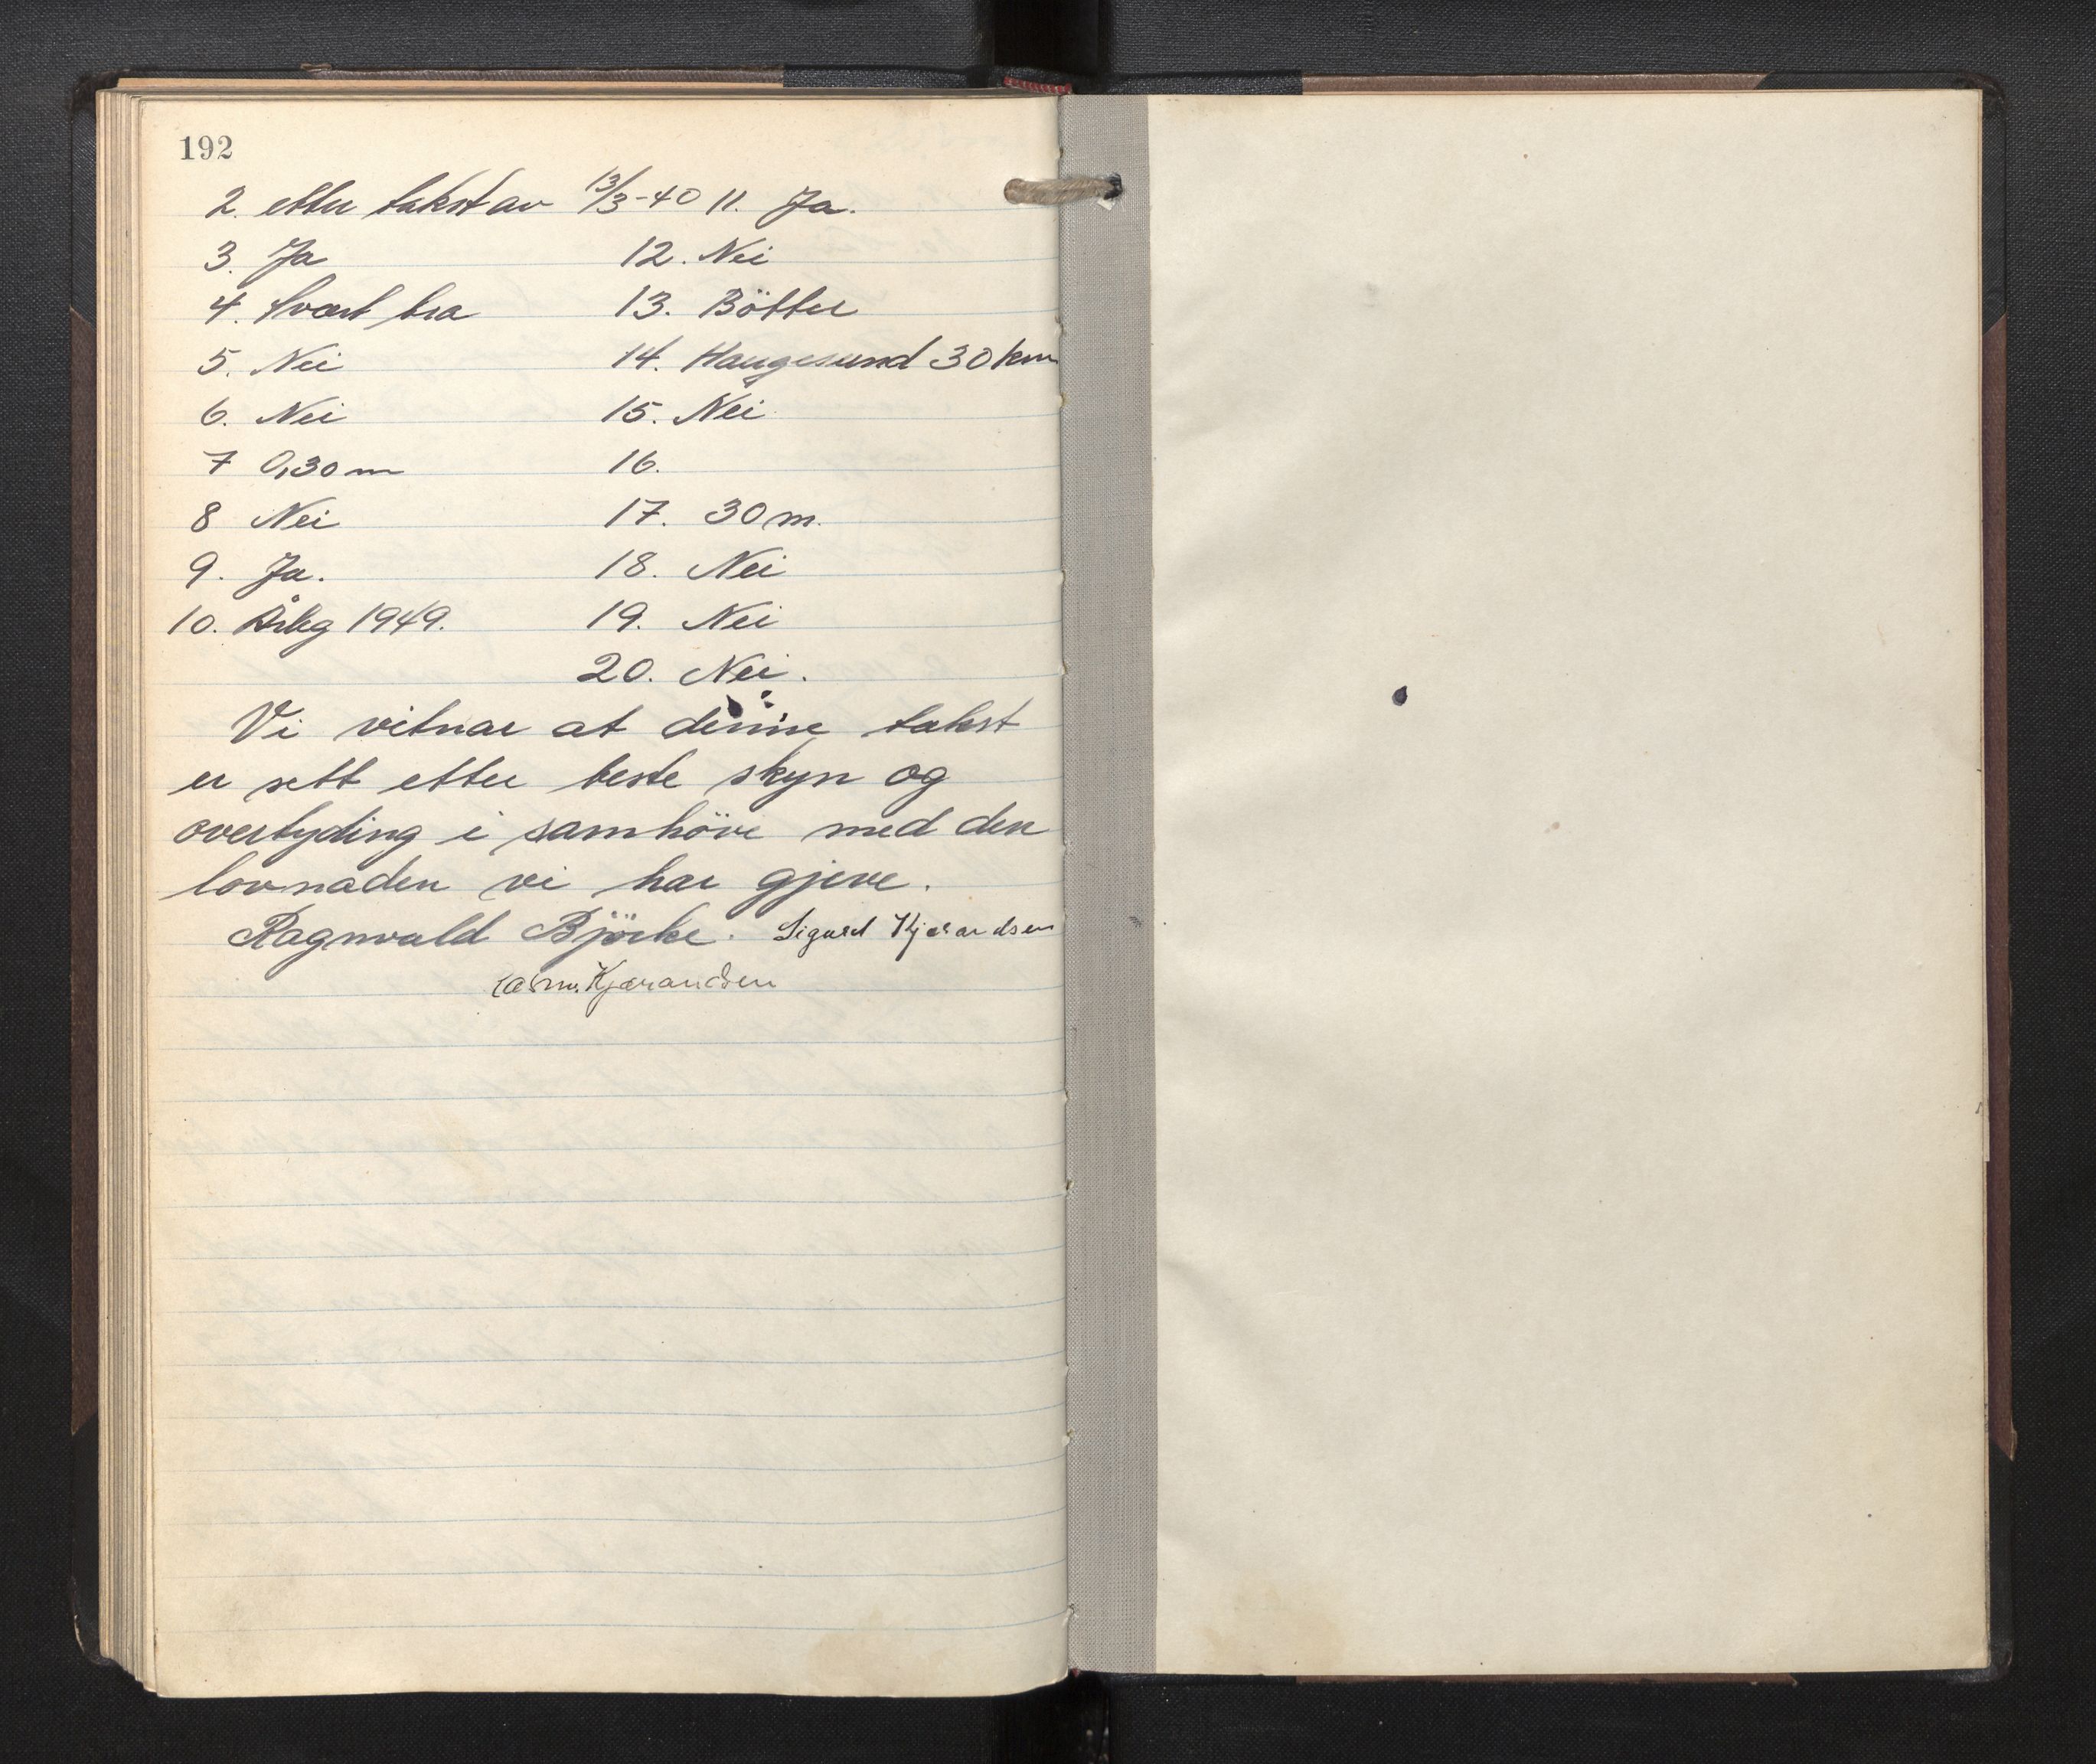 192
2. etter takst av 13/3-40 11. Ja.
3. Ja 12. Nei
4. Svært bra 13. Bötter
5. Nei 14. Haugesund 30 km
6. Nei 15. Nei
7 0,30 m 16.
8 Nei 17. 30 m.
9. Ja. 18. Nei
10. Årleg 1949. 19. Nei
20. Nei.
Vi vitnar at denne takst
er sett etter beste skyn og
overtyding i samhöve med den
lovnaden vi har gjeve.
Ragnvald Björke. Sigurd Kjærandsen
Rasm. Kjærandsen